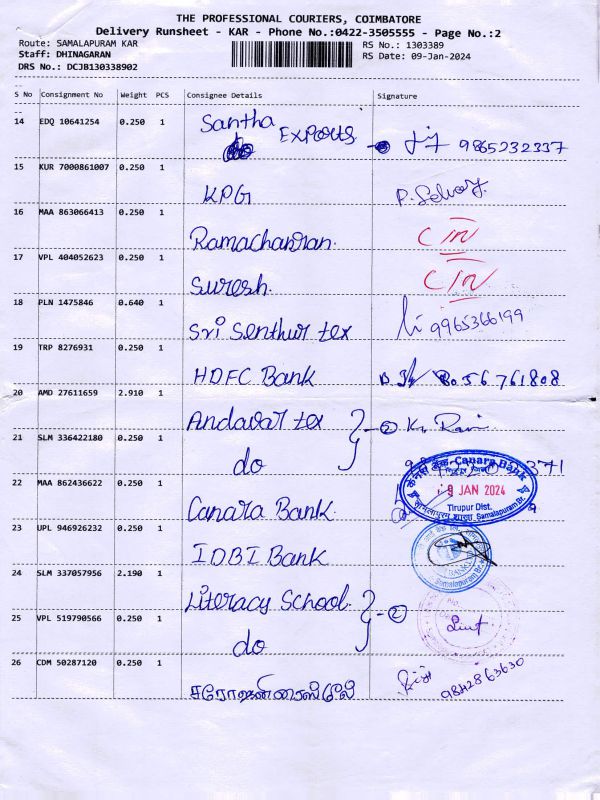 THE PROFESSIONAL COURIERS, COIMBATORE
Delivery Runsheet - KAR - Phone No.:0422-3505555 - Page No.:2
Route: SAMALAPURAM KAR
RS No.: 1303389
Staff: DHINAGARAN
RS Date: 09-Jan-2024
DRS No.: DCJB130338902
S No Consignment No Weight PCS Consignee Details Signature
14 EDQ 10641254 0.250 1 Santha Exports 9865232337
15 KUR 7000861007 0.250 1 KPG
16 MAA 863066413 0.250 1 Ramachanran.
17 VPL 404052623 0.250 1 Suresh.
18 PLN 1475846 0.640 1 Sri Senthur tex 9965366199
19 TRP 8276931 0.250 1 HDFC Bank 8056761808
20 AMD 27611659 2.910 1 Andavar tex
21 SLM 336422180 0.250 1 do 371
22 MAA 862436622 0.250 1 Canara Bank.
केनरा बैंक Canara Bank
9 JAN 2024
Tirupur Dist.
Samalapuram Br.
23 UPL 946926232 0.250 1 IDBI Bank
24 SLM 337057956 2.190 1 Literacy School.
25 VPL 519790566 0.250 1 do
26 CDM 50287120 0.250 1 9842863630